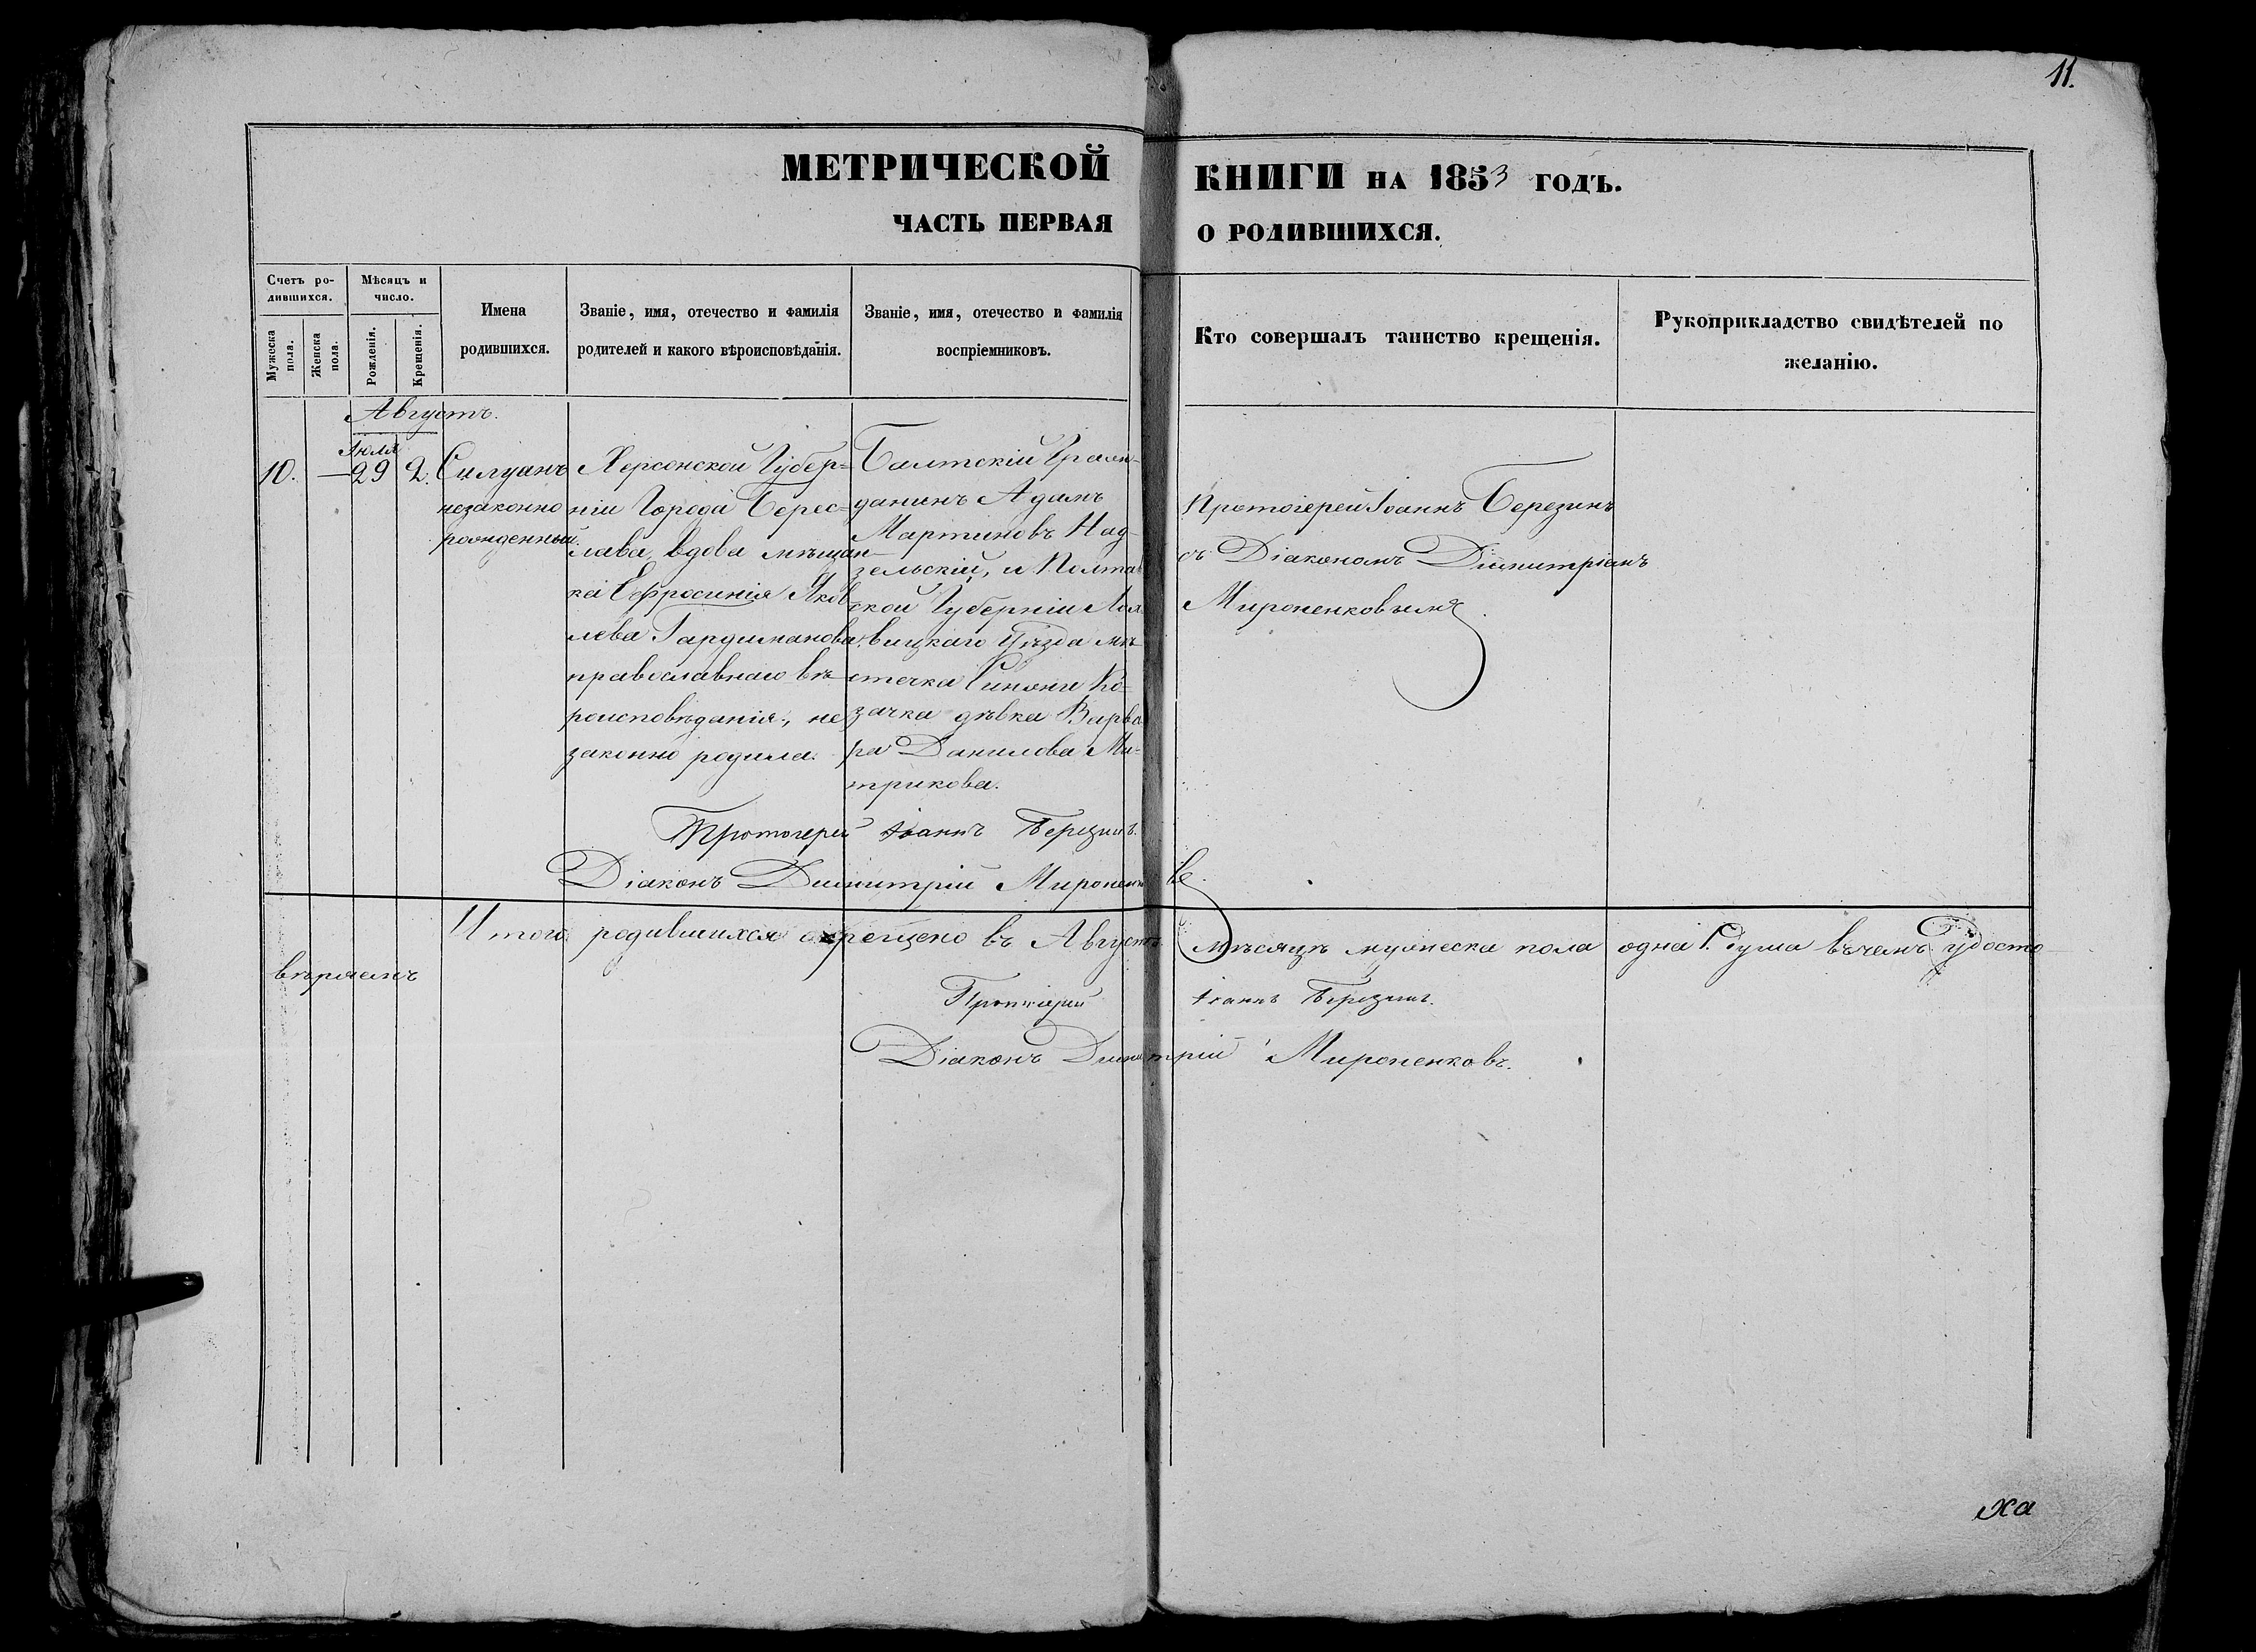 11.
МЕТРИЧЕСКОЙ КНИГИ НА 1853 ГОДЪ.
ЧАСТЬ ПЕРВАЯ О РОДИВШИХСЯ.
Счетъ ро-
дившихся.
Мужеска пола.
Женска пола.
Мѣсяцъ и
число.
Рожденія.
Крещенія.
Имена
родившихся.
Званіе, имя, отечество и фамилія
родителей и какого вѣроисповѣданія.
Званіе, имя, отечество и фамилія
воспріемниковъ.
Кто совершалъ таинство крещенія.
Рукоприкладство свидѣтелей по
желанію.
Августъ.
Іюля
10. — 29 2.
Силуанъ
незаконно
рожденный.
Херсонской Губер=
ніи Города Берес=
лава, вдова мѣщан-
ка Ефросинія Яков
лева Гардиманова,
православнаго вѣ-
роисповѣданія, не
законно родила.
Балтскій Граж-
данинъ Адамъ
Мартиновъ Над-
зельскій, и Полтав
ской Губерніи
вицкаго Уѣзда мѣ-
стечка Синяги Ко=
зачка дѣвка Варва
ра Данилова Ми-
трикова.
Протоіерей Іоаннъ Березинъ
съ Діакономъ Димитріемъ
Мироненковымъ.
Протоіерей Іоаннъ Березинъ.
Діаконъ Димитрій Мироненковъ.
Итого родившихся окрещено въ Августѣ мѣсяцѣ мужеска пола одна 1. душа въ чемъ удосто
вѣряемъ
Протоіерей Іоаннъ Березинъ.
Діаконъ Димитрій Мироненковъ.
ха